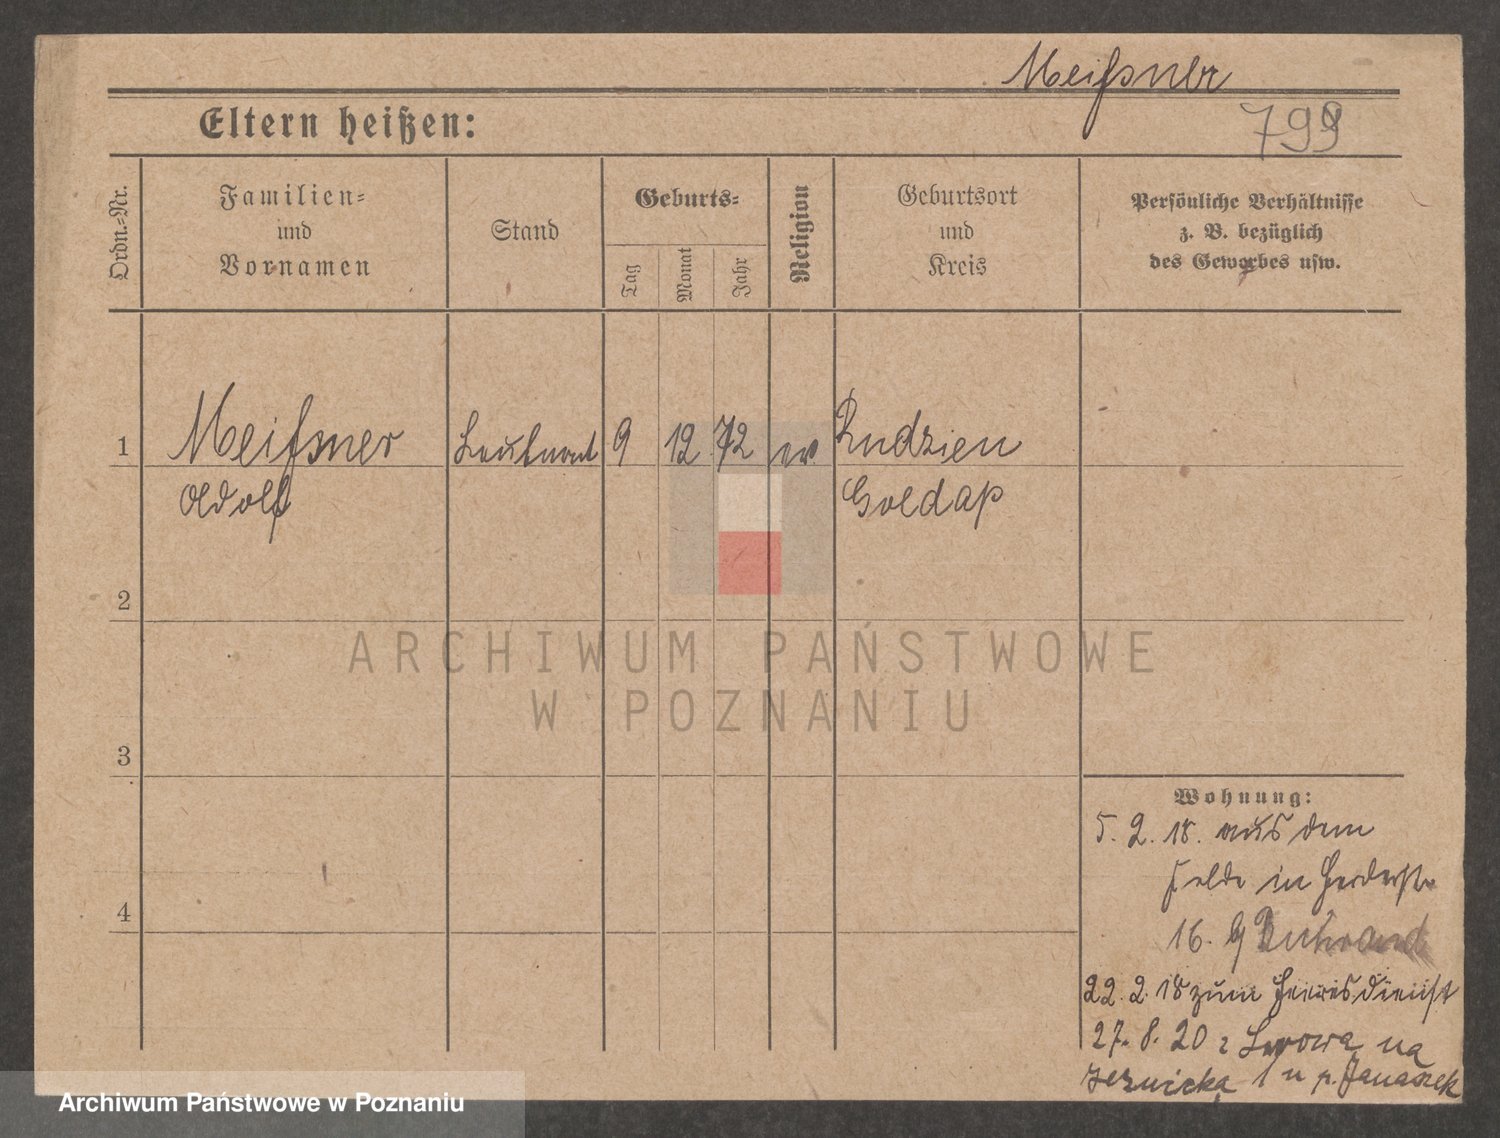 Meißner
799
Eltern heißen:
Ordn.-Nr.
Familien-
und
Vornamen
Stand
Geburts-
Tag
Monat
Jahr
Religion
Geburtsort
und
Kreis
Persönliche Verhältnisse
z. B. bezüglich
des Gewerbes usw.
1
Meißner
Leutnant
9
12
72
ev
Rudzien
Adolf
Goldap
2
ARCHIWUM PAŃSTWOWE
W POZNANIU
3
Wohnung:
5. 2. 18. aus dem
Felde in Herderstr
16. b/
4
22. 2. 18 zum Heeresdienst
27. 8. 20 z Lwowa na
1 u p. Janaszek
Archiwum Państwowe w Poznaniu